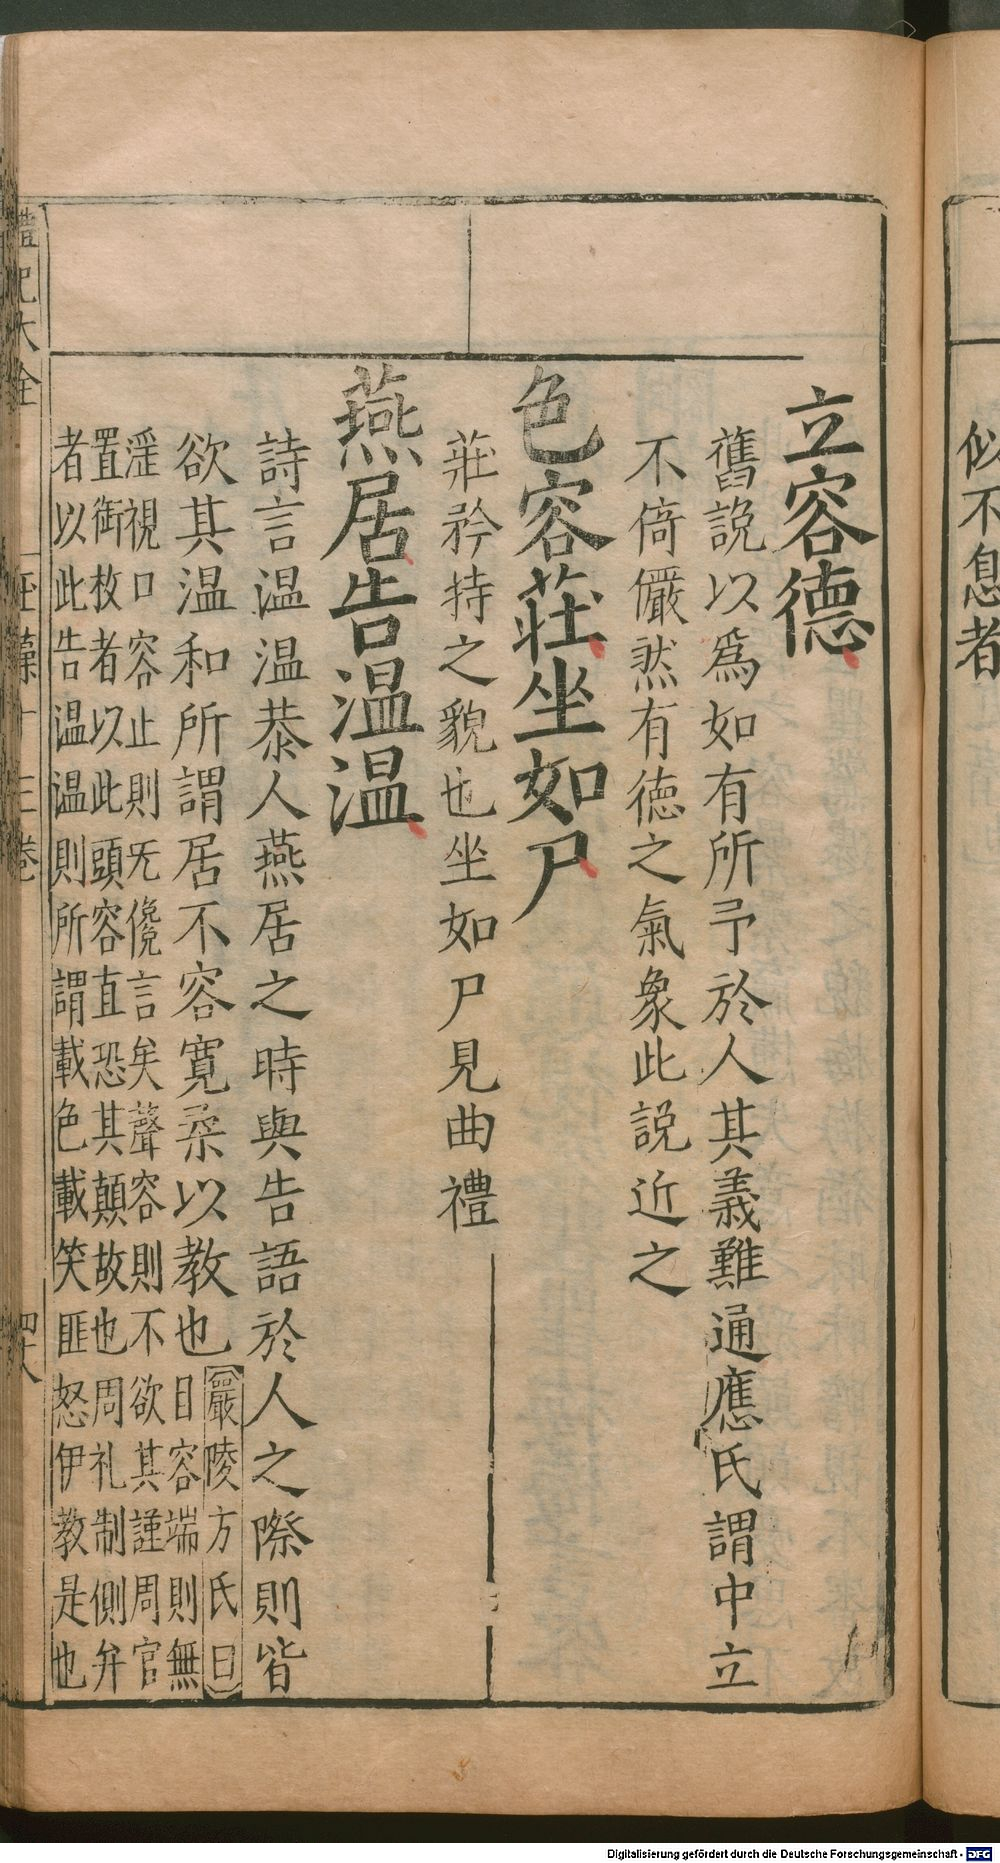 似不息者
立容德
舊說以爲如有所予於人其義難通應氏謂中立
不倚儼然有徳之氣象此説近之
色容莊坐如尸
莊矜持之貌也坐如尸見曲禮
燕居告温温
詩言温温恭人燕居之時與告語於人之際則皆
欲其温和所謂居不容寛柔以教也
嚴陵方氏曰
目容端則無
淫視口容止則旡儳言矣聲容則不欲其謹周官
置銜枚者以此頭容直恐其顛故也周礼制側弁
者以此告温温則所謂載色載笑匪怒伊教是也
禮記大全
玉藻十三卷
Digitalisierung gefördert durch die Deutsche Forschungsgemeinschaft - DFG